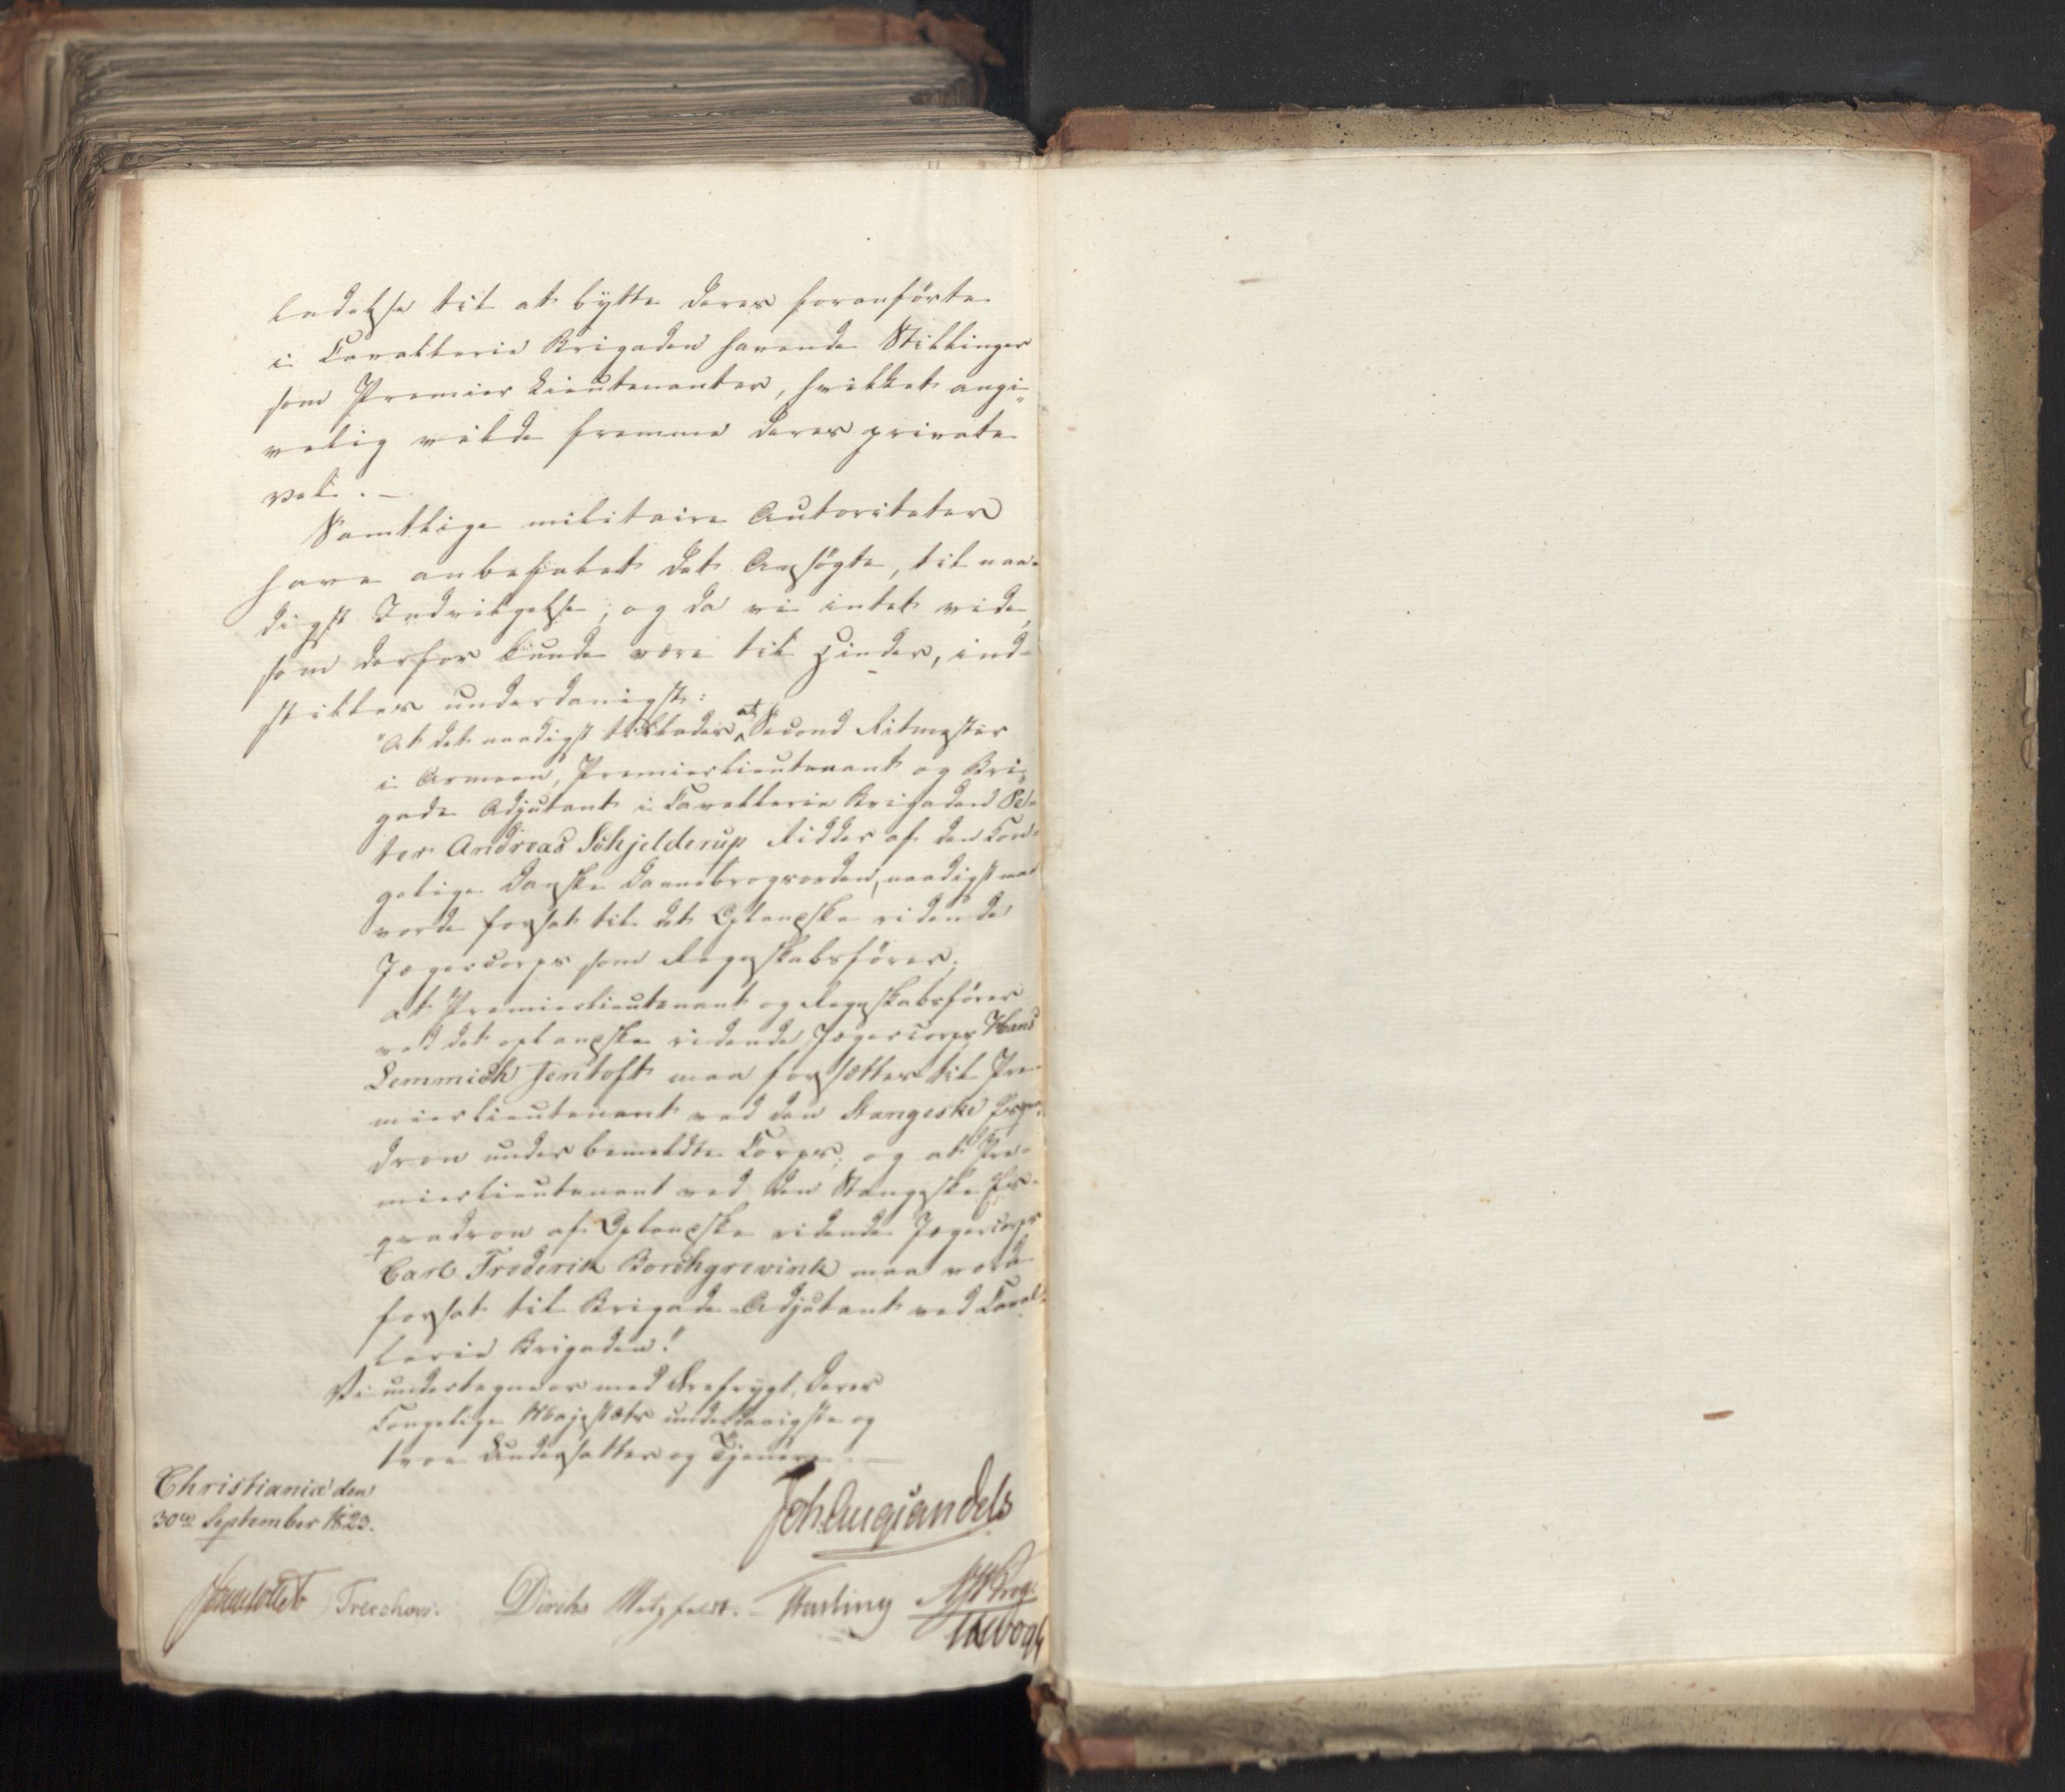 ladelse til at bytte deres foranførte
i Cavallerie Brigaden havende Stillinger
som Premier Lieutenanter, hvilket angi-
velig vilde fremme deres private
Vel. –
Samtlige militaire Autoriteter
have anbefalet det Ansøgte, til naa-
digst Indvilgelse; og da vi intet vide,
som derfor kunde være til Hinder, ind-
stilles underdanigst:
"At det naadigst tillades at Second Ritmester
i Armeen, Premierlieutenant og Bri-
gade Adjutant i Cavallerie Brigaden Pe-
ter Andreas Schjelderup Ridder af den Kon-
gelige Danske Dannebrogsorden, naadigst maa
vorde forsat til det Oplandske ridende
Jægercorps som Regnskabsfører;
at Premierlieutenant og Regnskabsfører
ved det oplandske ridende Jægercorps Hans
Lemmich Jentoft maa forsættes til Pre-
mierlieutenant ved den Stangeske Esqva-
dron under bemeldte Corps; og at Pre-
mierlieutenant ved den Stangeske Es-
qvadron af Oplandske ridende Jægercorps
Carl Frederik Borchgrevink maa vorde
forsat til Brigade-Adjutant ved Caval-
lerie Brigaden."
Vi undertegne os med Ærefrygt, Deres
Kongelige Majestæts underdanigste og
troe Undersatter og Tjenere. –
Christiania den
30te September 1823.
Joh Aug Sandels
Sommelhielm Treschow. Diriks Motzfeldt. Fasting Krog
JHVogt